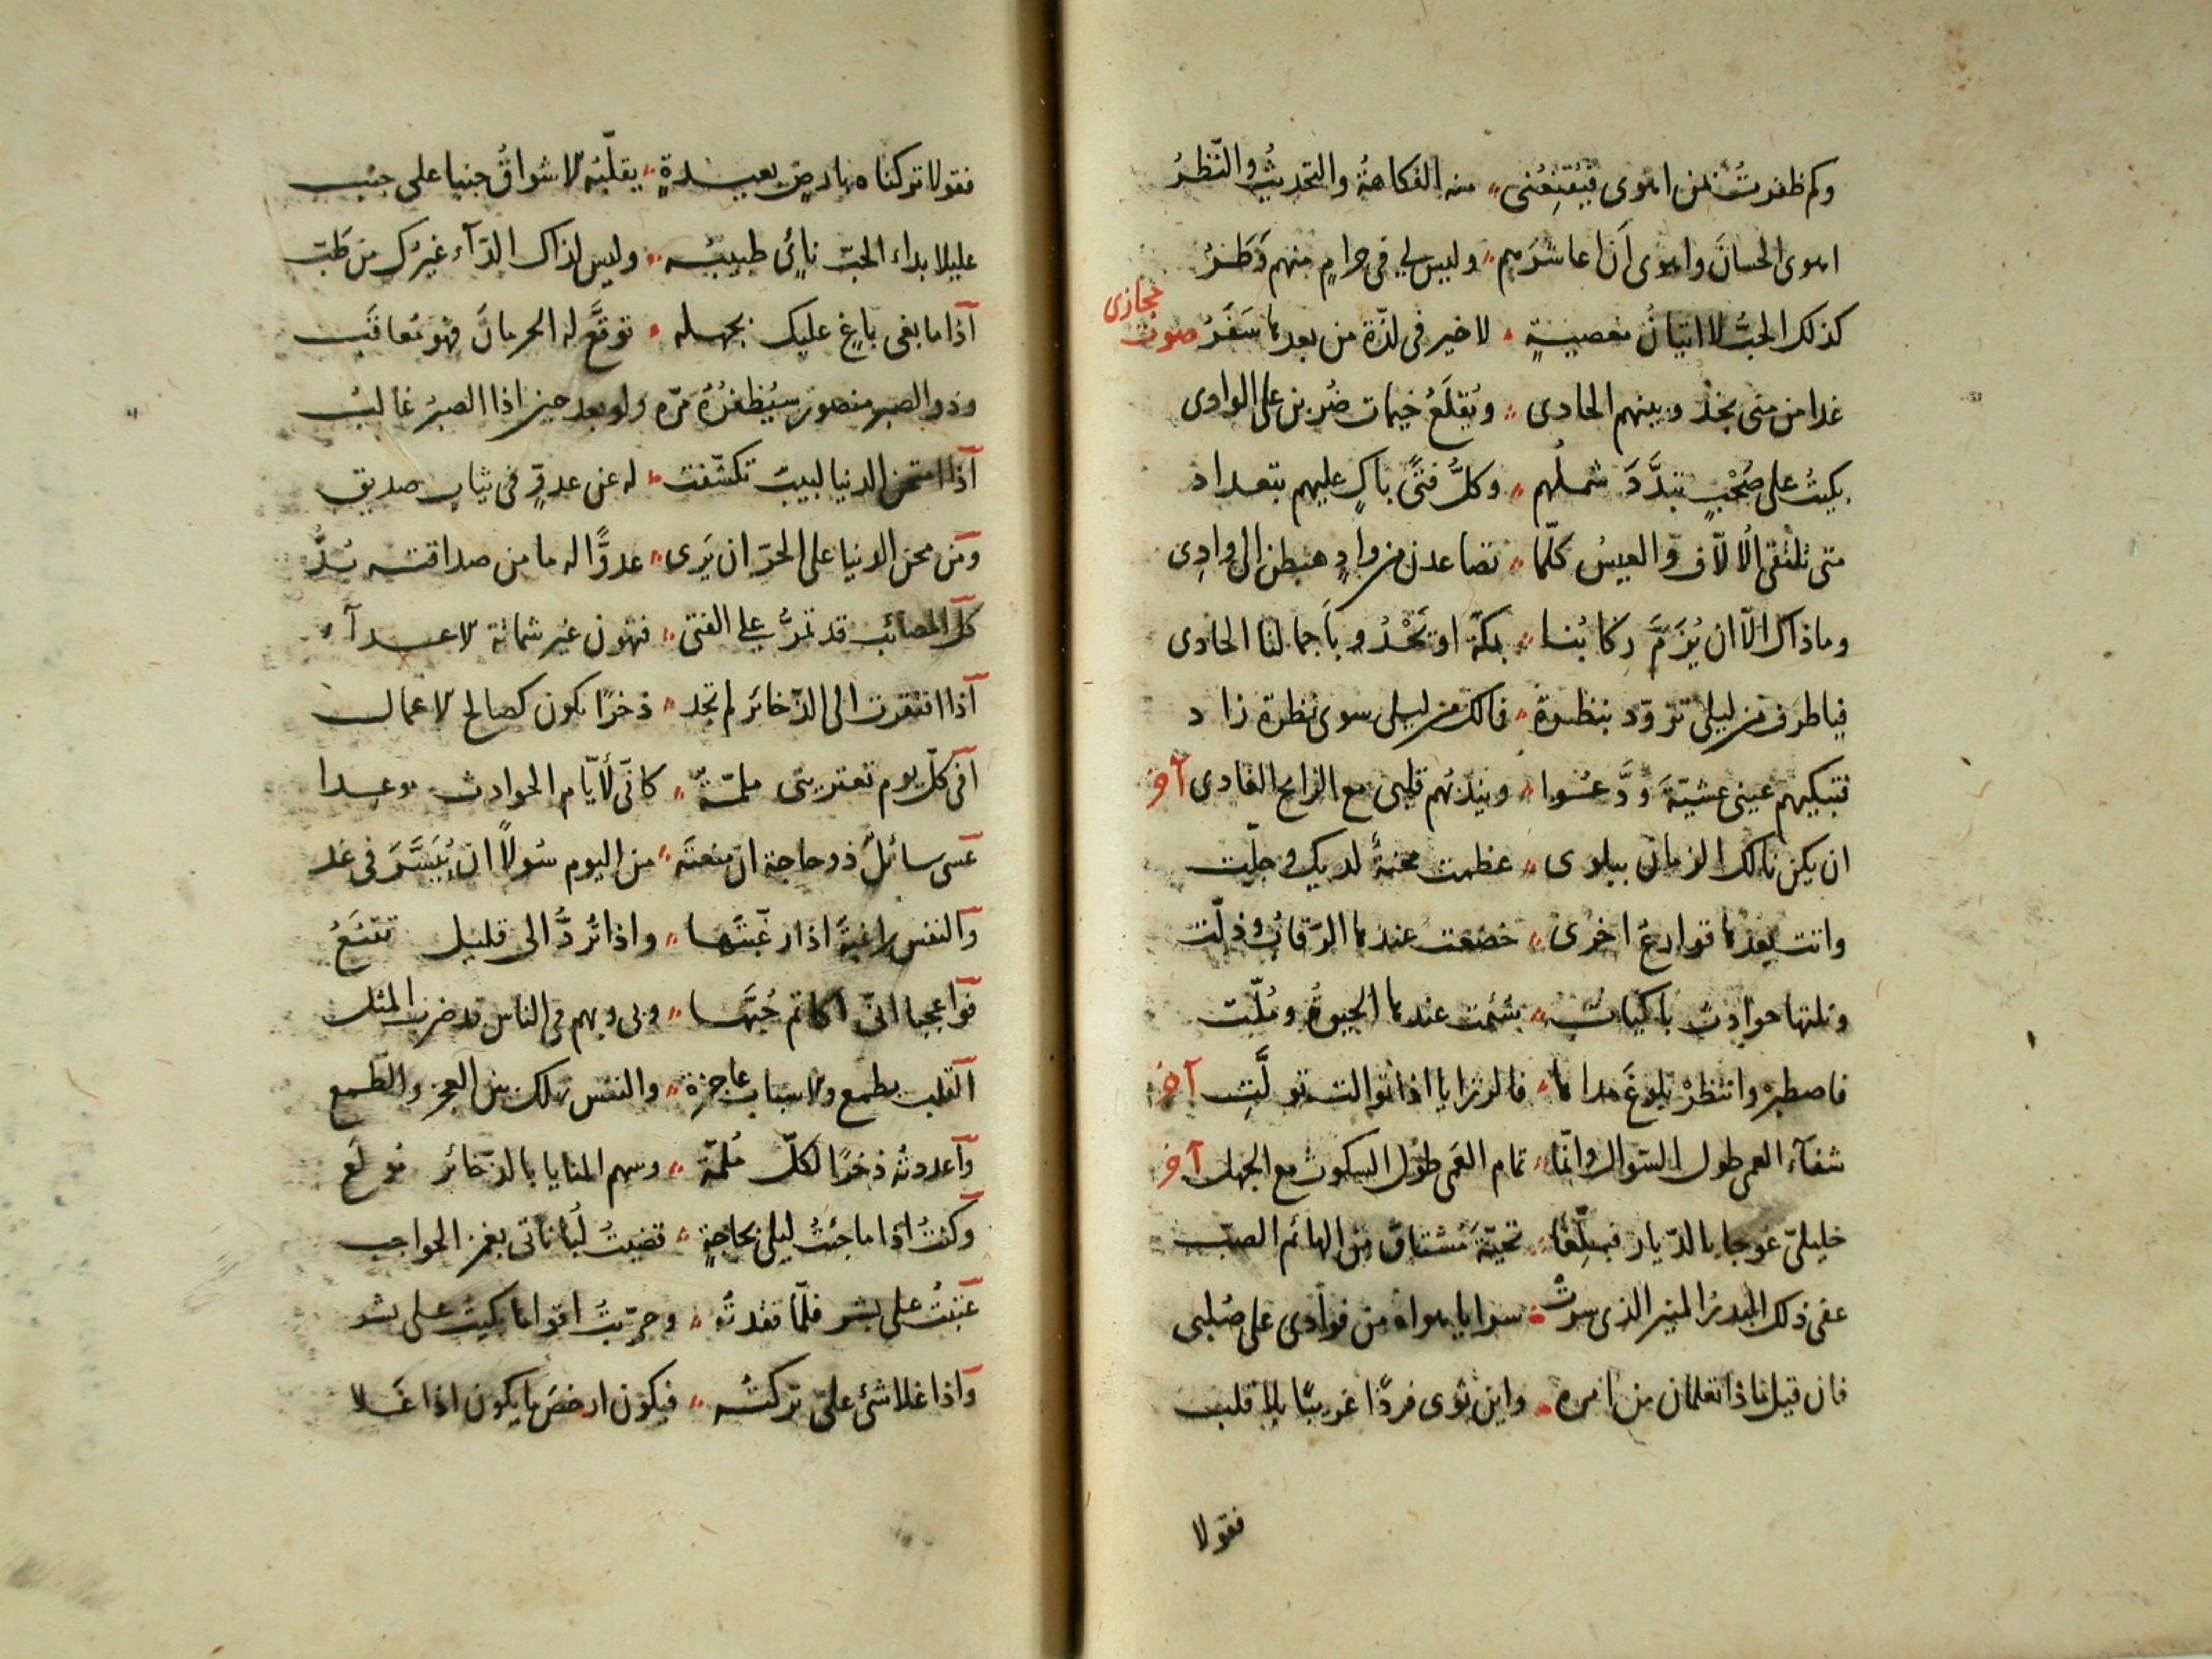 وكم ظفرتُ بمن اهوى فيُقنِعُنى منه الفكاهةُ والتحديثُ والنّظرُ
اهوى الحسانَ واهوى اَن اعاشرَهم وليس لي فى حرامٍ منهم وَطَرُ
كذلك الحبُّ لا اتيانُ معصيةٍ لا خير فى لذّة من بعدها سَقَرُ صوت حجازى
غدا من منى يخد وبينهم الحادى وتُقلَعُ خيمات ضُربن على الوادى
بكيتُ على صَحْبٍ تبدَّدَ شملُهم وكلُّ فتًى باكٍ عليهم بتعداد
متى تلتقى الُالّاف والعيسُ كلّما تصاعدن من وادٍ هبطن الى وادِى
وما ذاك الّا ان يُزَمَّ ركابُنا بمكّة او تَحْدُو باَجمالنا الحادى
فياطرف من ليلى تزوّد بنظرة فمالك من ليلى سوى نظرة زاد
فتبكيهم عينى عشيّةَ ودَّعُوا ويندبُهم قلبى مع الرايح الغادى آخر
ان يكن نالك الزمان ببلوى عظمت محنةً لديك وجلّت
واتت بعدها قوارعُ اخرى خضعت عندها الرّقابُ وذلّت
وتلتها حوادث باكياتٌ سُئمت عندها الحيوةُ ومُلّت
فاصطبرْ وانتظرْ بلوغَ مداها فالرزايا اذا توالت تولَّتِ آخر
شفآء العمى طول السّوال وانّما تمام العَمى طول السكوت مع الجهل آخر
خليلىّ عوجا بالدّيار فبلِّغا تحيّةَ مُشتاق من الهائم الصبّ
على ذلك البدرُ المنير الذى سرتْ سرايا هواه من فوأدى على صُلبى
فان قيل ماذا تعلمان من امره واين ثوى فردًا غريبًا بلا قلب
فقولا
فقولا تركناه بارضٍ بعيدةٍ يقلّبه الاشواقُ جنبا على جنب
عليلا بداء الحبّ نائٍى طبيبه وليس لذاك الدّآء غيرَك من طَبّ
آذا ما بغى باغٍ عليك بجهله توقَّع له الحرمانَ فهو مُعاقَب
وذو الصبر منصور سيُظفرُهُ مرّه ولو بعد حين اذا الصبرُ غالبُ
آذا امتحن الدنيا لبيبٌ تكشّفت له عن عدوّ فى ثياب صديق
ومن محن الدنيا على الحرّ ان يَرى عدوًّا له ما من صداقته بُدُّ
كلّ المصائب قد تمرُّ على الفتى فتهون غير شماتة الاعدآء
آذا افتقرت الى الذّخائر لم تجد ذخرًا يكون كصالح الاعمال
افى كلّ يوم تعتريتى ملمّةٌ كانّى لأيّام الحوادث موعدا
عسى سائلٌ ذو حاجة ان منعتَه من اليوم سُولاً ان يُيَسَّرَ فى غد
والنفس راغبةٌ اذا رغّبتَها واذا تُردُّ الى قليل تقنَعُ
فوآعجبا انّى اكاتم حُبَّها وبى وبهم فى الناس قد ضرب المثل
القلب يطمع والاسباب عاجزة والنفس تهلك بين العجز والطّمع
وآعددته ذخرًا لكلّ مُلمّة وسهم المنايا بالذّخائر مُولَع
وكنتُ اذا ما جئتُ ليلى بحاجةٍ قضيتُ لُباناتى بغمز الحواجب
عتبتُ على بشر فلمّا فقدتُه وجرّبتُ اقواما بكيت على بشر
واذا غلا شئ علىّ تركتُه فيكون ارخصَ ما يكون اذا غَلا